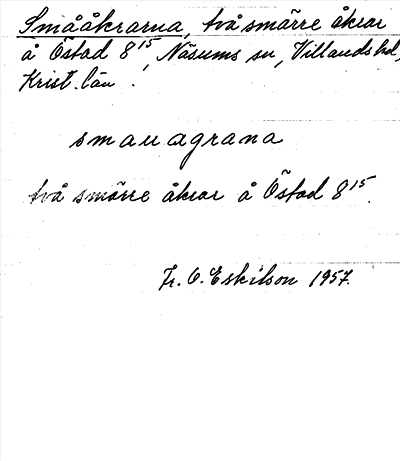 Smååkrarna, två smärre åkrar
å Östad 8¹⁵, Näsums sn, Villands hd,
Krist. län.
smauagrana
två smärre åkrar å Östad 8¹⁵.
Fr. O. Eskilson 1957.